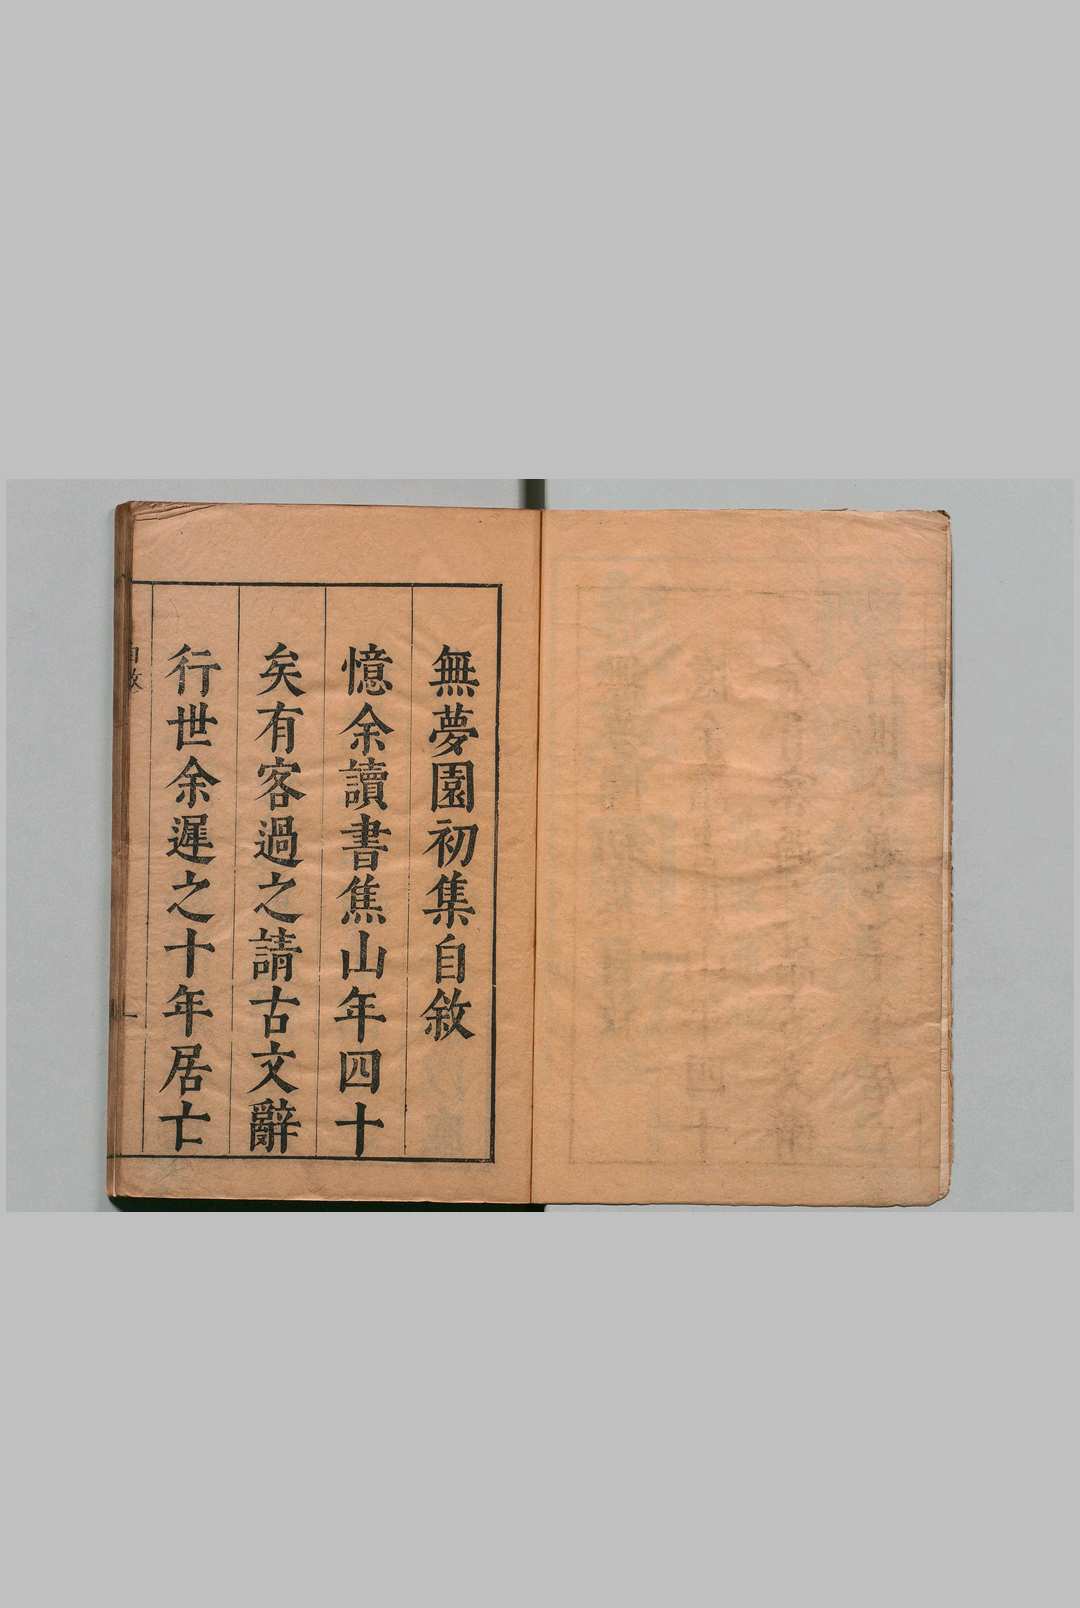 無夢園初集自敘
憶余讀書焦山年四十
矣有客過之請古文辭
行世余遲之十年居亡
自敘
一